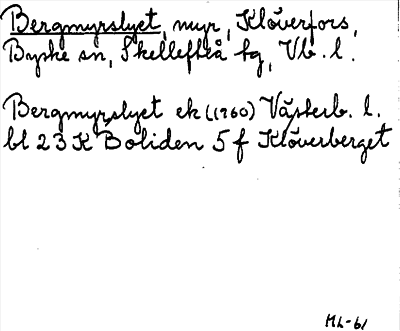 Bergmyrslyet, myr, Klöverfors,
Byske sn, Skellefteå tg, Vb. l.
Bergmyrslyet ek (1960) Västerb. l.
bl 23 K Boliden 5 f Klöverberget
ML-61